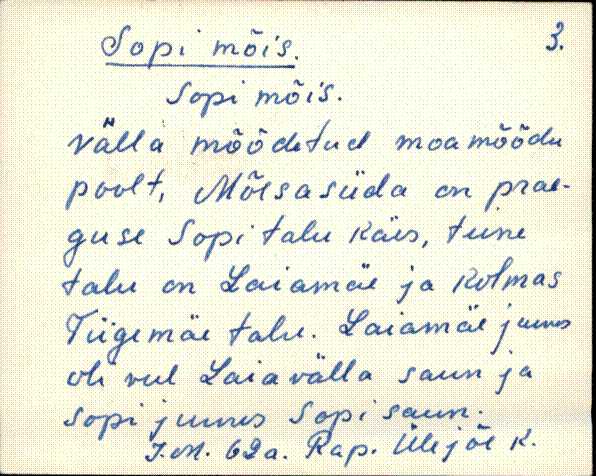 Sopi mõis. 3.
Sopi mõis.
välla mõõdetud moamõõdu
poolt, Mõisasüda on prae-
guse Sopi talu käes, teine
talu on Laiamäe ja kolmas
Tiigemäe talu. Laiamäe juures
oli veel Laiavälla saun ja
Sopi juures Sopi saun.
J.M. 62a. Rap. Ülejõe k.